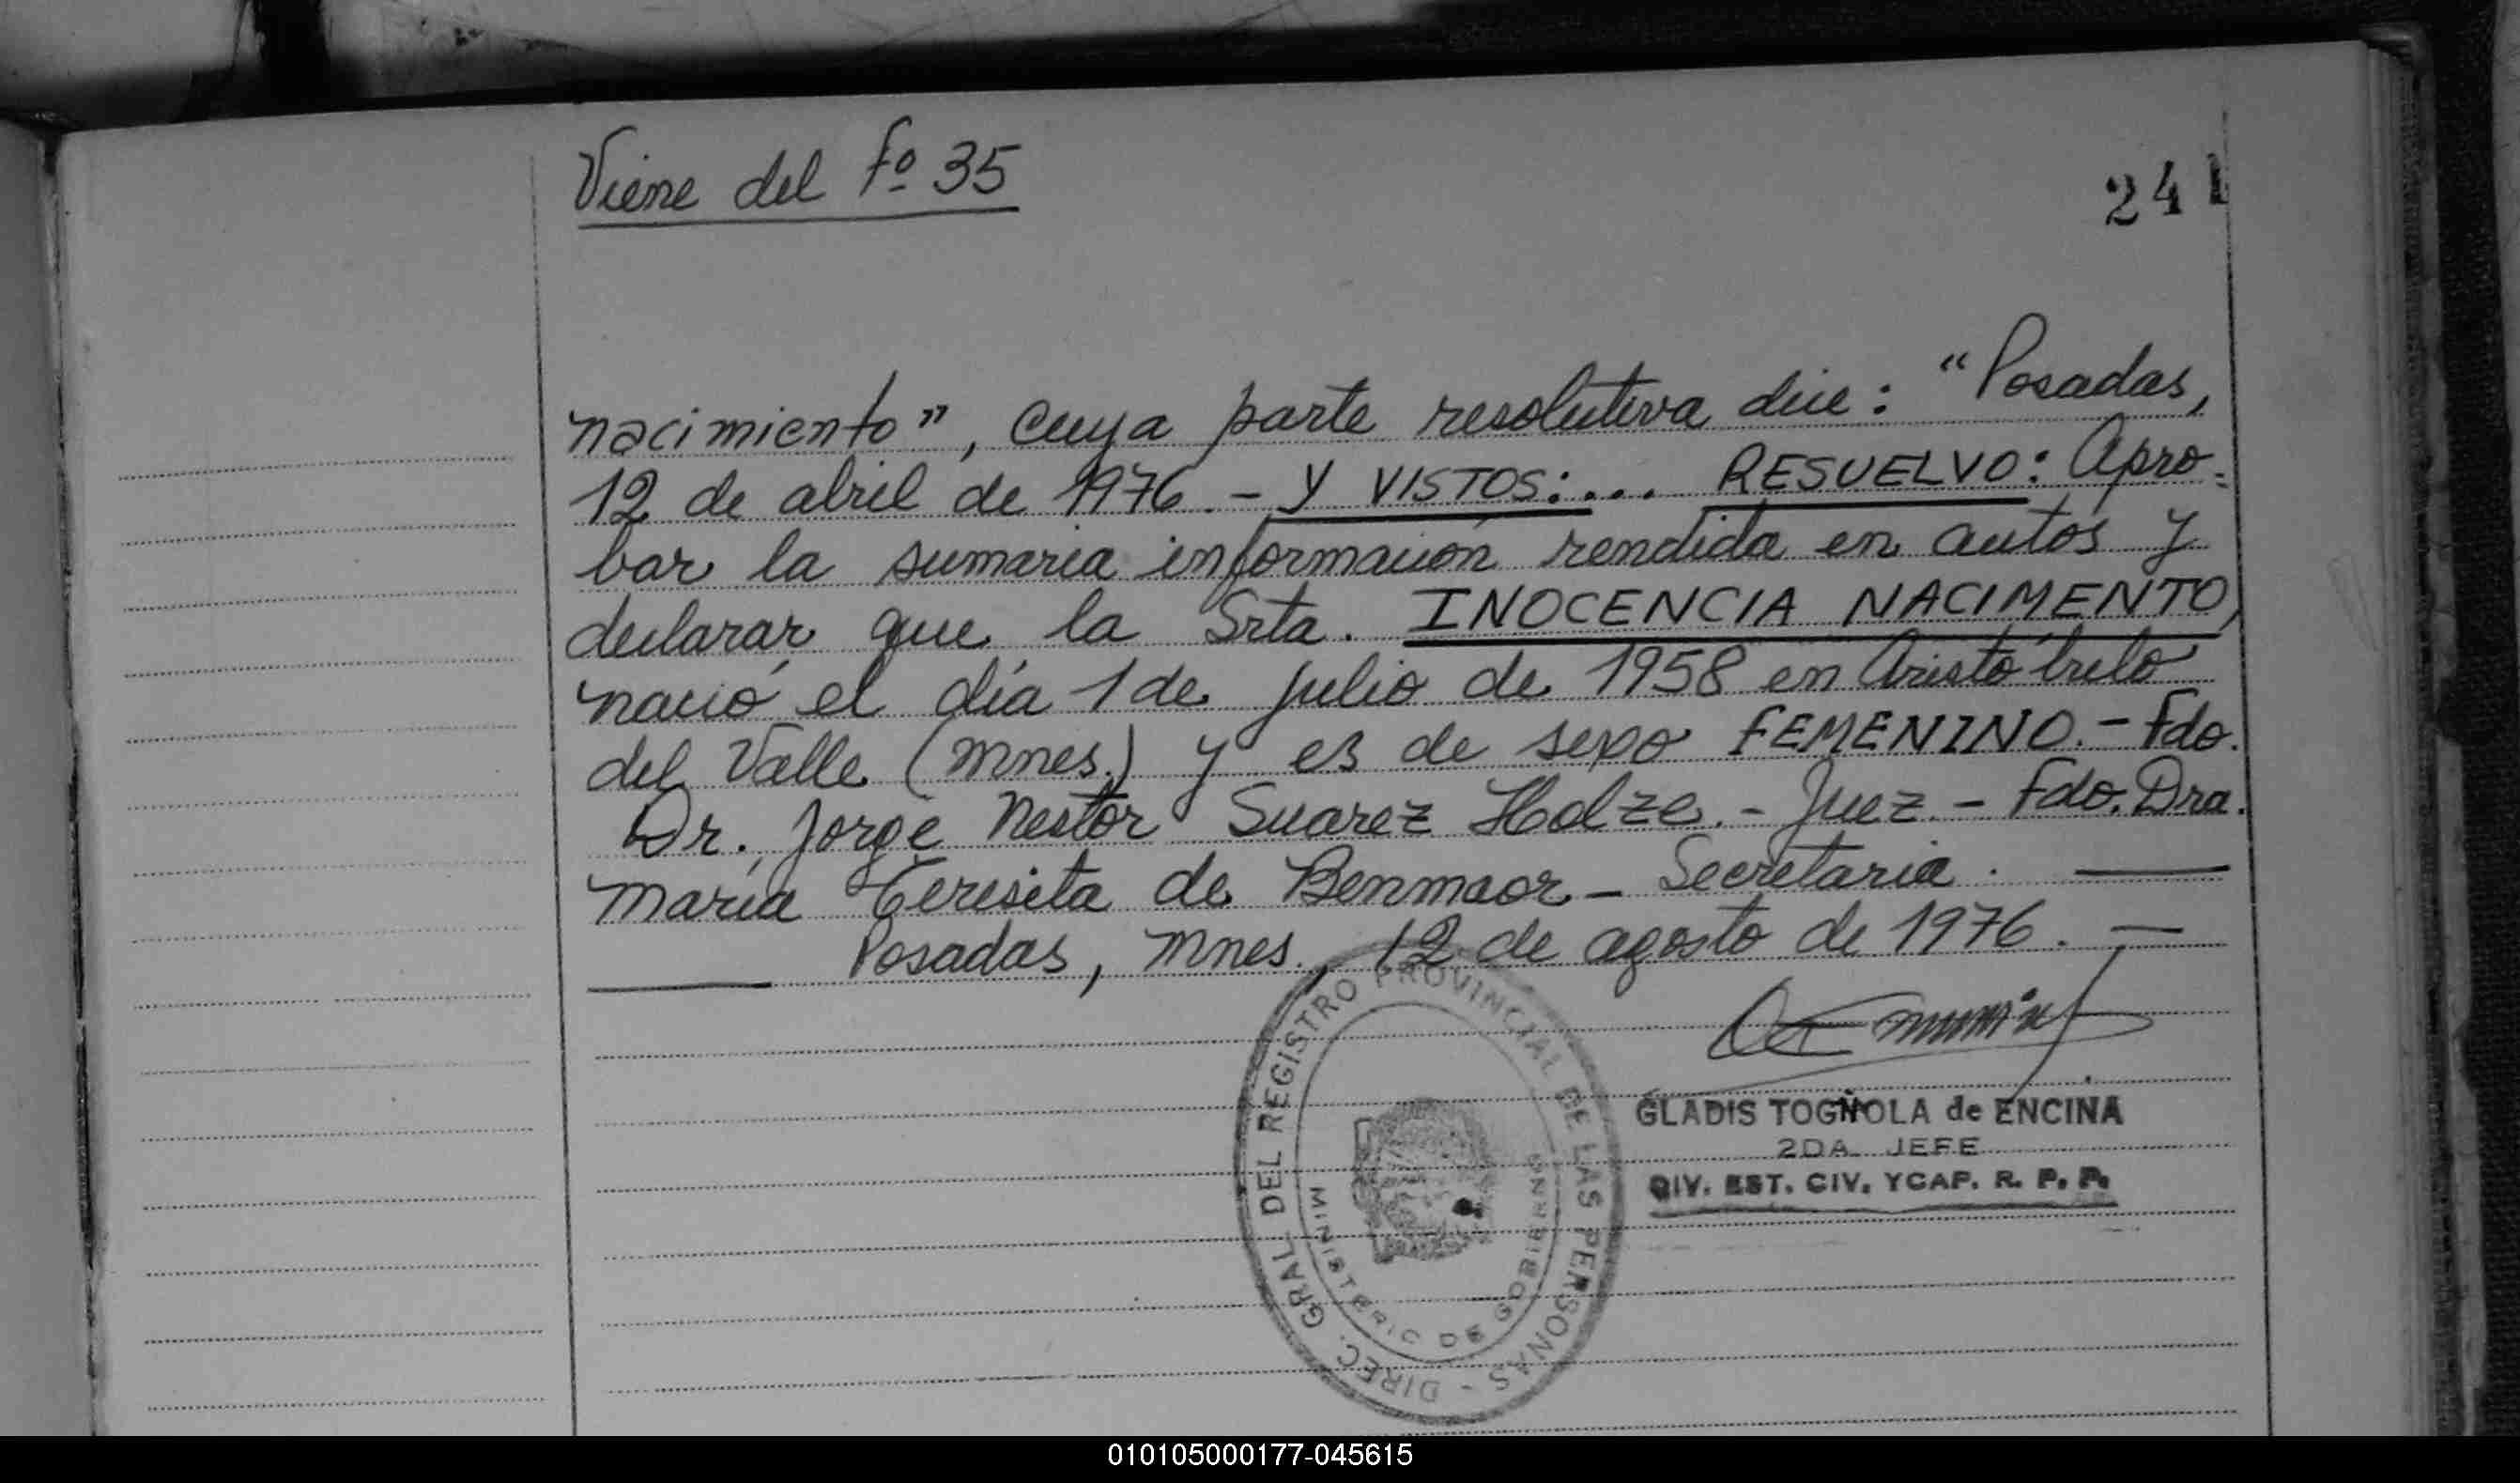 Viene del Fº 35
241
nacimiento", cuya parte resolutiva dice: "Posadas,
12 de abril de 1976.- Y VISTOS:... RESUELVO: Apro-
bar la sumaria información rendida en autos y
declarar que la Srta. INOCENCIA NACIMENTO,
nació el día 1 de julio de 1958 en Aristóbulo
del Valle (Mnes.) y es de sexo FEMENINO.- Fdo.
Dr. Jorge Nestor Suarez Holze.- Juez.- Fdo. Dra.
María Teresita de Benmaor - Secretaria.
Posadas, Mnes., 12 de agosto de 1976.
DIREC. GRAL DEL REGISTRO PROVINCIAL DE LAS PERSONAS -
MINISTERIO DE GOBIERNO
GLADIS TOGÑOLA de ENCINA
2DA JEFE
DIV. EST. CIV. YCAP. R. P. P.
010105000177-045615